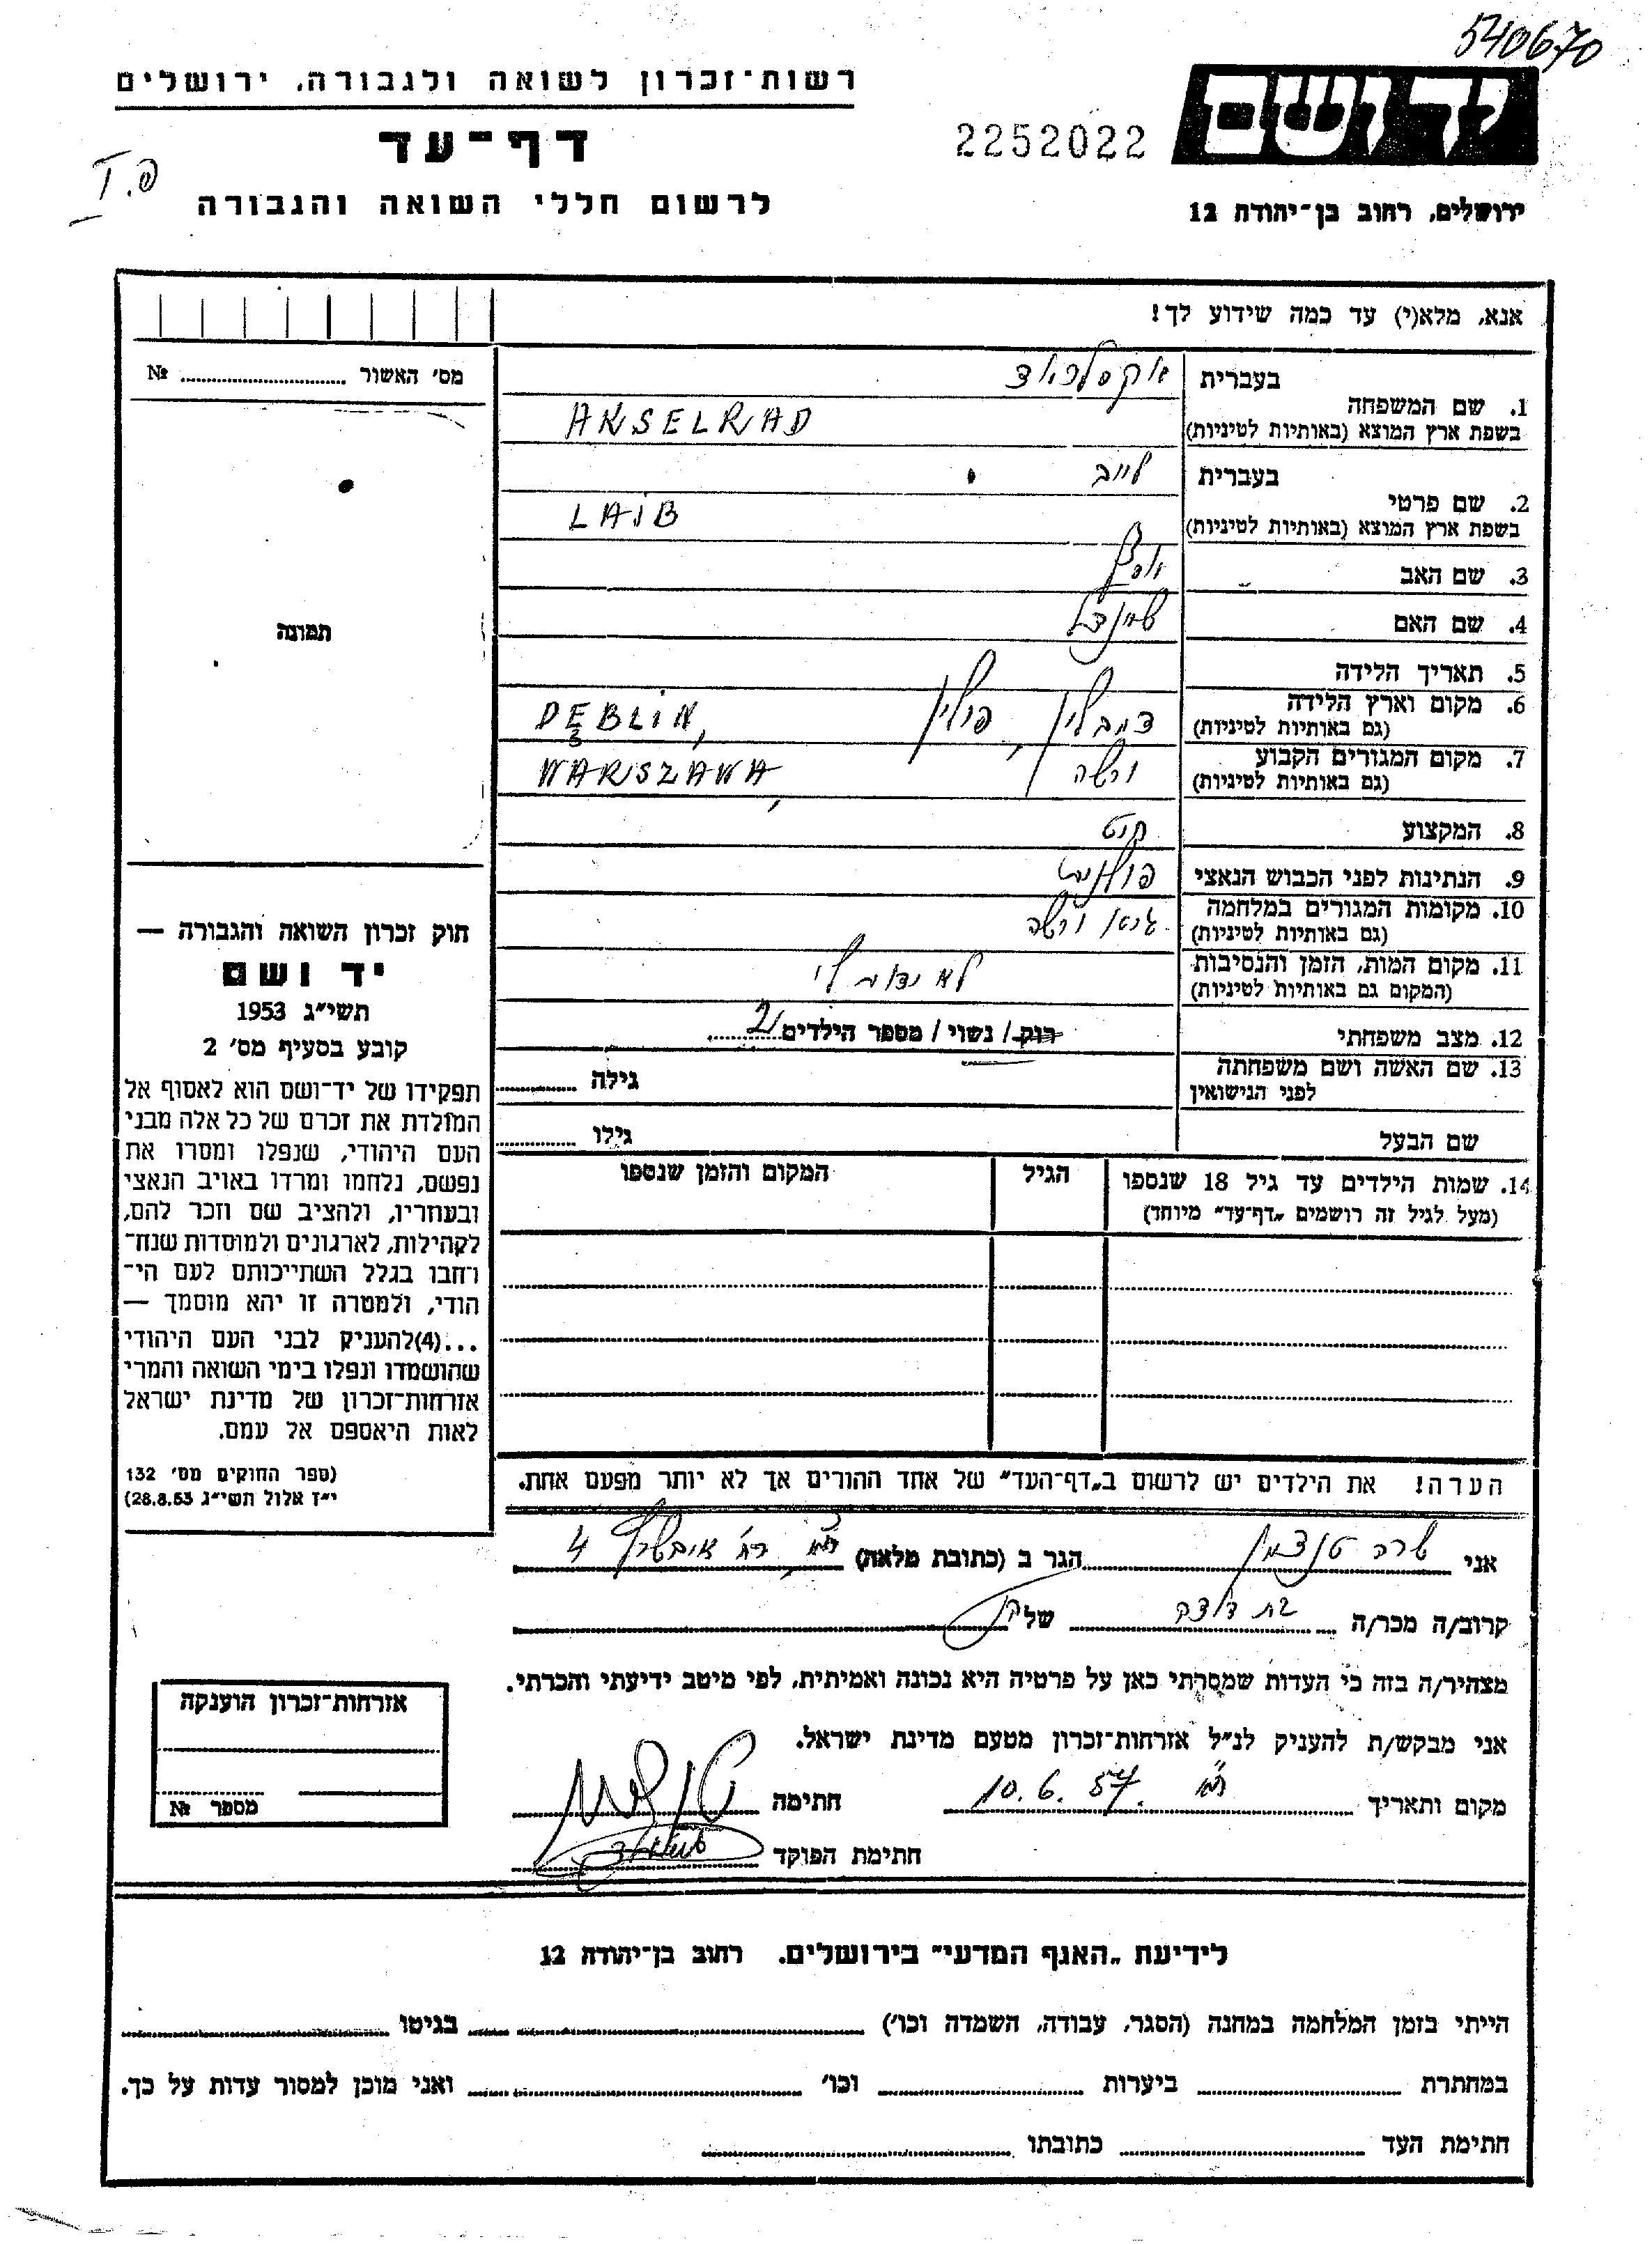 540670
רשות-זכרון לשואה ולגבורה, ירושלים
ידושם
2252022
דף-עד
פ. I
לרשום חללי השואה והגבורה
ירושלים, רחוב בן-יהודה 12
אנא, מלא(י) עד כמה שידוע לך!
מס׳ האשור № 
בעברית
1. שם המשפחה
בשפת ארץ המוצא (באותיות לטיניות)
AKSELRAD
בעברית לייב
2. שם פרטי
בשפת ארץ המוצא (באותיות לטיניות)
LAIB
3. שם האב
4. שם האם שיינדל
תמונה
5. תאריך הלידה
6. מקום וארץ הלידה דמבלין, פולין DĘBLIN,
(גם באותיות לטיניות)
7. מקום המגורים הקבוע ורשה WARSZAWA,
(גם באותיות לטיניות)
8. המקצוע
9. הנתינות לפני הכבוש הנאצי פולנית
10. מקומות המגורים במלחמה גטו ורשה
(גם באותיות לטיניות)
11. מקום המות, הזמן והנסיבות לא ידוע לי
(המקום גם באותיות לטיניות)
12. מצב משפחתי רווק / נשוי / מספר הילדים 2
13. שם האשה ושם משפחתה גילה
לפני הנישואין
שם הבעל גילו
14. שמות הילדים עד גיל 18 שנספו הגיל המקום והזמן שנספו
(מעל לגיל זה רושמים „דף-עד״ מיוחד)
חוק זכרון השואה והגבורה —
יד ושם
תשי״ג 1953
קובע בסעיף מס׳ 2
תפקידו של יד-ושם הוא לאסוף אל
המולדת את זכרם של כל אלה מבני
העם היהודי, שנפלו ומסרו את
נפשם, נלחמו ומרדו באויב הנאצי
ובעוזריו, ולהציב שם וזכר להם,
לקהילות, לארגונים ולמוסדות שנח-
רחבו בגלל השתייכותם לעם הי-
הודי, ולמטרה זו יהא מוסמך —
...(4)להעניק לבני העם היהודי
שהושמדו ונפלו בימי השואה והמרי
אזרחות-זכרון של מדינת ישראל
לאות היאספם אל עמם.
(ספר החוקים מס׳ 132
י״ז אלול תשי״ג 28.8.53)
הערה! את הילדים יש לרשום ב„דף-העד״ של אחד ההורים אך לא יותר מפעם אחת.
אני שרה הגר ב (כתובת מלאה) 4
קרוב/ה מכר/ה בת דודה של
מצהיר/ה בזה כי העדות שמסרתי כאן על פרטיה היא נכונה ואמיתית, לפי מיטב ידיעתי והכרתי.
אני מבקש/ת להעניק לנ״ל אזרחות-זכרון מטעם מדינת ישראל.
מקום ותאריך 10.6.57. חתימה
חתימת הפוקד
אזרחות-זכרון הוענקה
מספר №
לידיעת „האגף המדעי״ בירושלים. רחוב בן-יהודה 12
הייתי בזמן המלחמה במחנה (הסגר, עבודה, השמדה וכו׳) בגיטו
במחתרת ביערות וכו׳ ואני מוכן למסור עדות על כך.
חתימת העד כתובתו